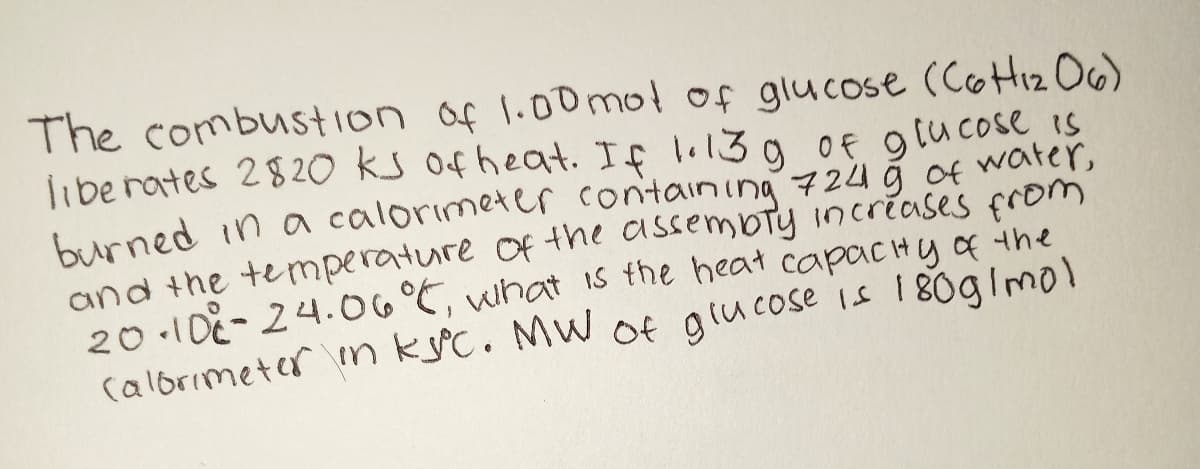 The combustion of 1.00 mol of glucose (C6H12O6)
liberates 2820 kJ of heat. If 1.13 g of glucose is
burned in a calorimeter containing 724 g of water,
and the temperature of the assembly increases from
20.10°C - 24.06°C, what is the heat capacity of the
calorimeter in kJ/°C. MW of glucose is 180g/mol